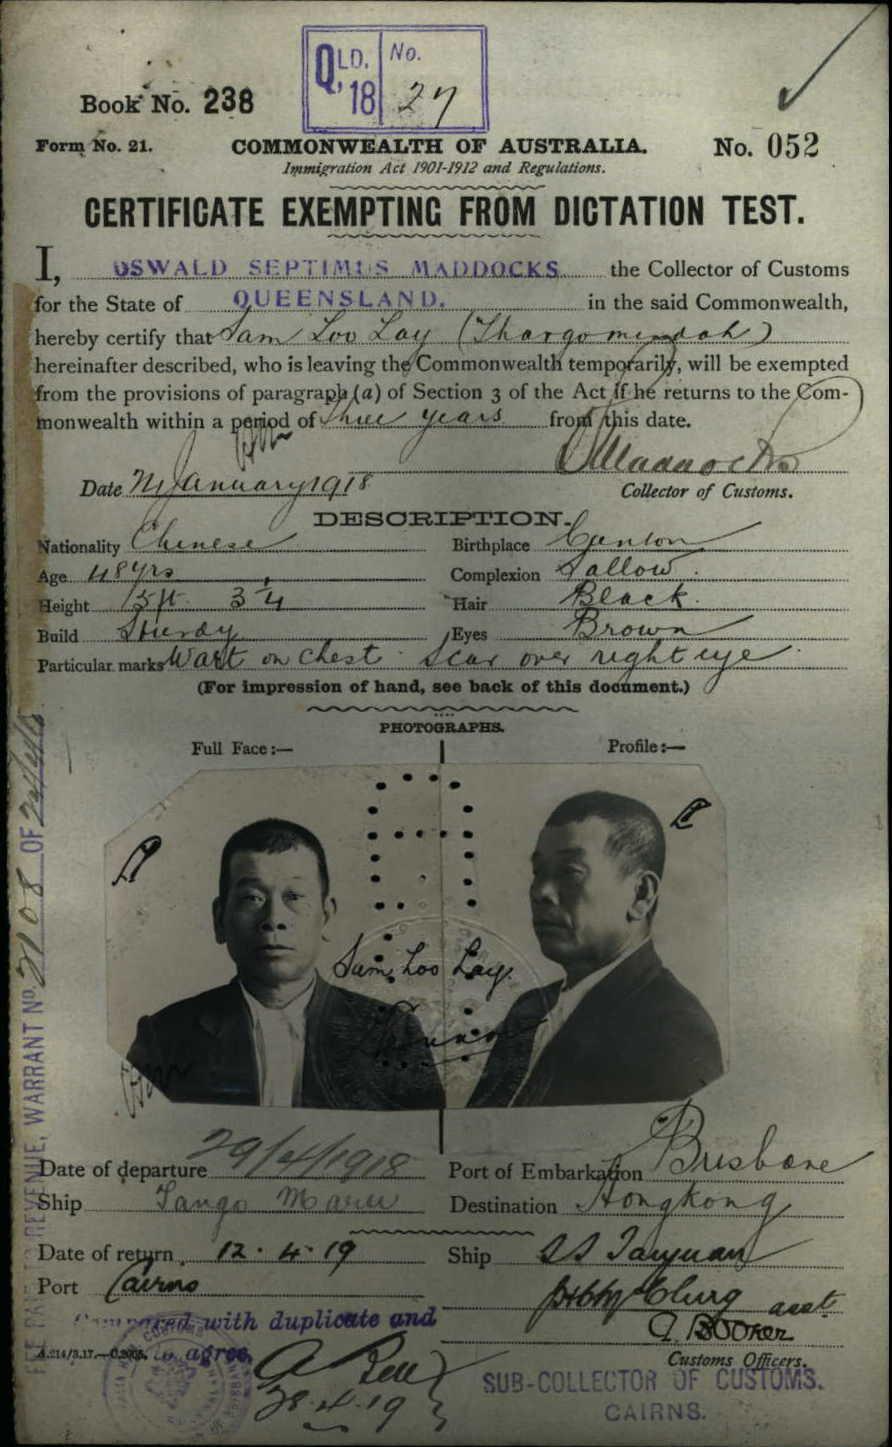 QLD. '18 No. 27
Book No. 238
Form No. 21. COMMONWEALTH OF AUSTRALIA. No. 052
Immigration Act 1901-1912 and Regulations.
CERTIFICATE EXEMPTING FROM DICTATION TEST.
I, OSWALD SEPTIMUS MADDOCKS the Collector of Customs
for the State of QUEENSLAND. in the said Commonwealth,
hereby certify that Sam Loo Lay (Thargomindah)
hereinafter described, who is leaving the Commonwealth temporarily, will be exempted
from the provisions of paragraph (a) of Section 3 of the Act if he returns to the Com-
monwealth within a period of three years from this date.
O S Maddocks
Date January 1918 Collector of Customs.
DESCRIPTION.
Nationality Chinese Birthplace Canton
Age 48 yrs Complexion Sallow.
Height 5 ft. 3 1/4 Hair Black.
Build Sturdy Eyes Brown
Particular marks Wart on chest. Scar over right eye
(For impression of hand, see back of this document.)
PHOTOGRAPHS.
Full Face:— Profile:—
Sam Loo Lay
Date of departure 29/4/1918 Port of Embarkation Brisbane
Ship Tango Maru Destination Hongkong
Date of return 12.4.19 Ship SS Taiyuan
Port Cairns
asst
G. Booker
Customs Officers.
Compared with duplicate and
agree.
28.4.19
SUB-COLLECTOR OF CUSTOMS.
CAIRNS.
REVENUE, WARRANT No. 2108 OF